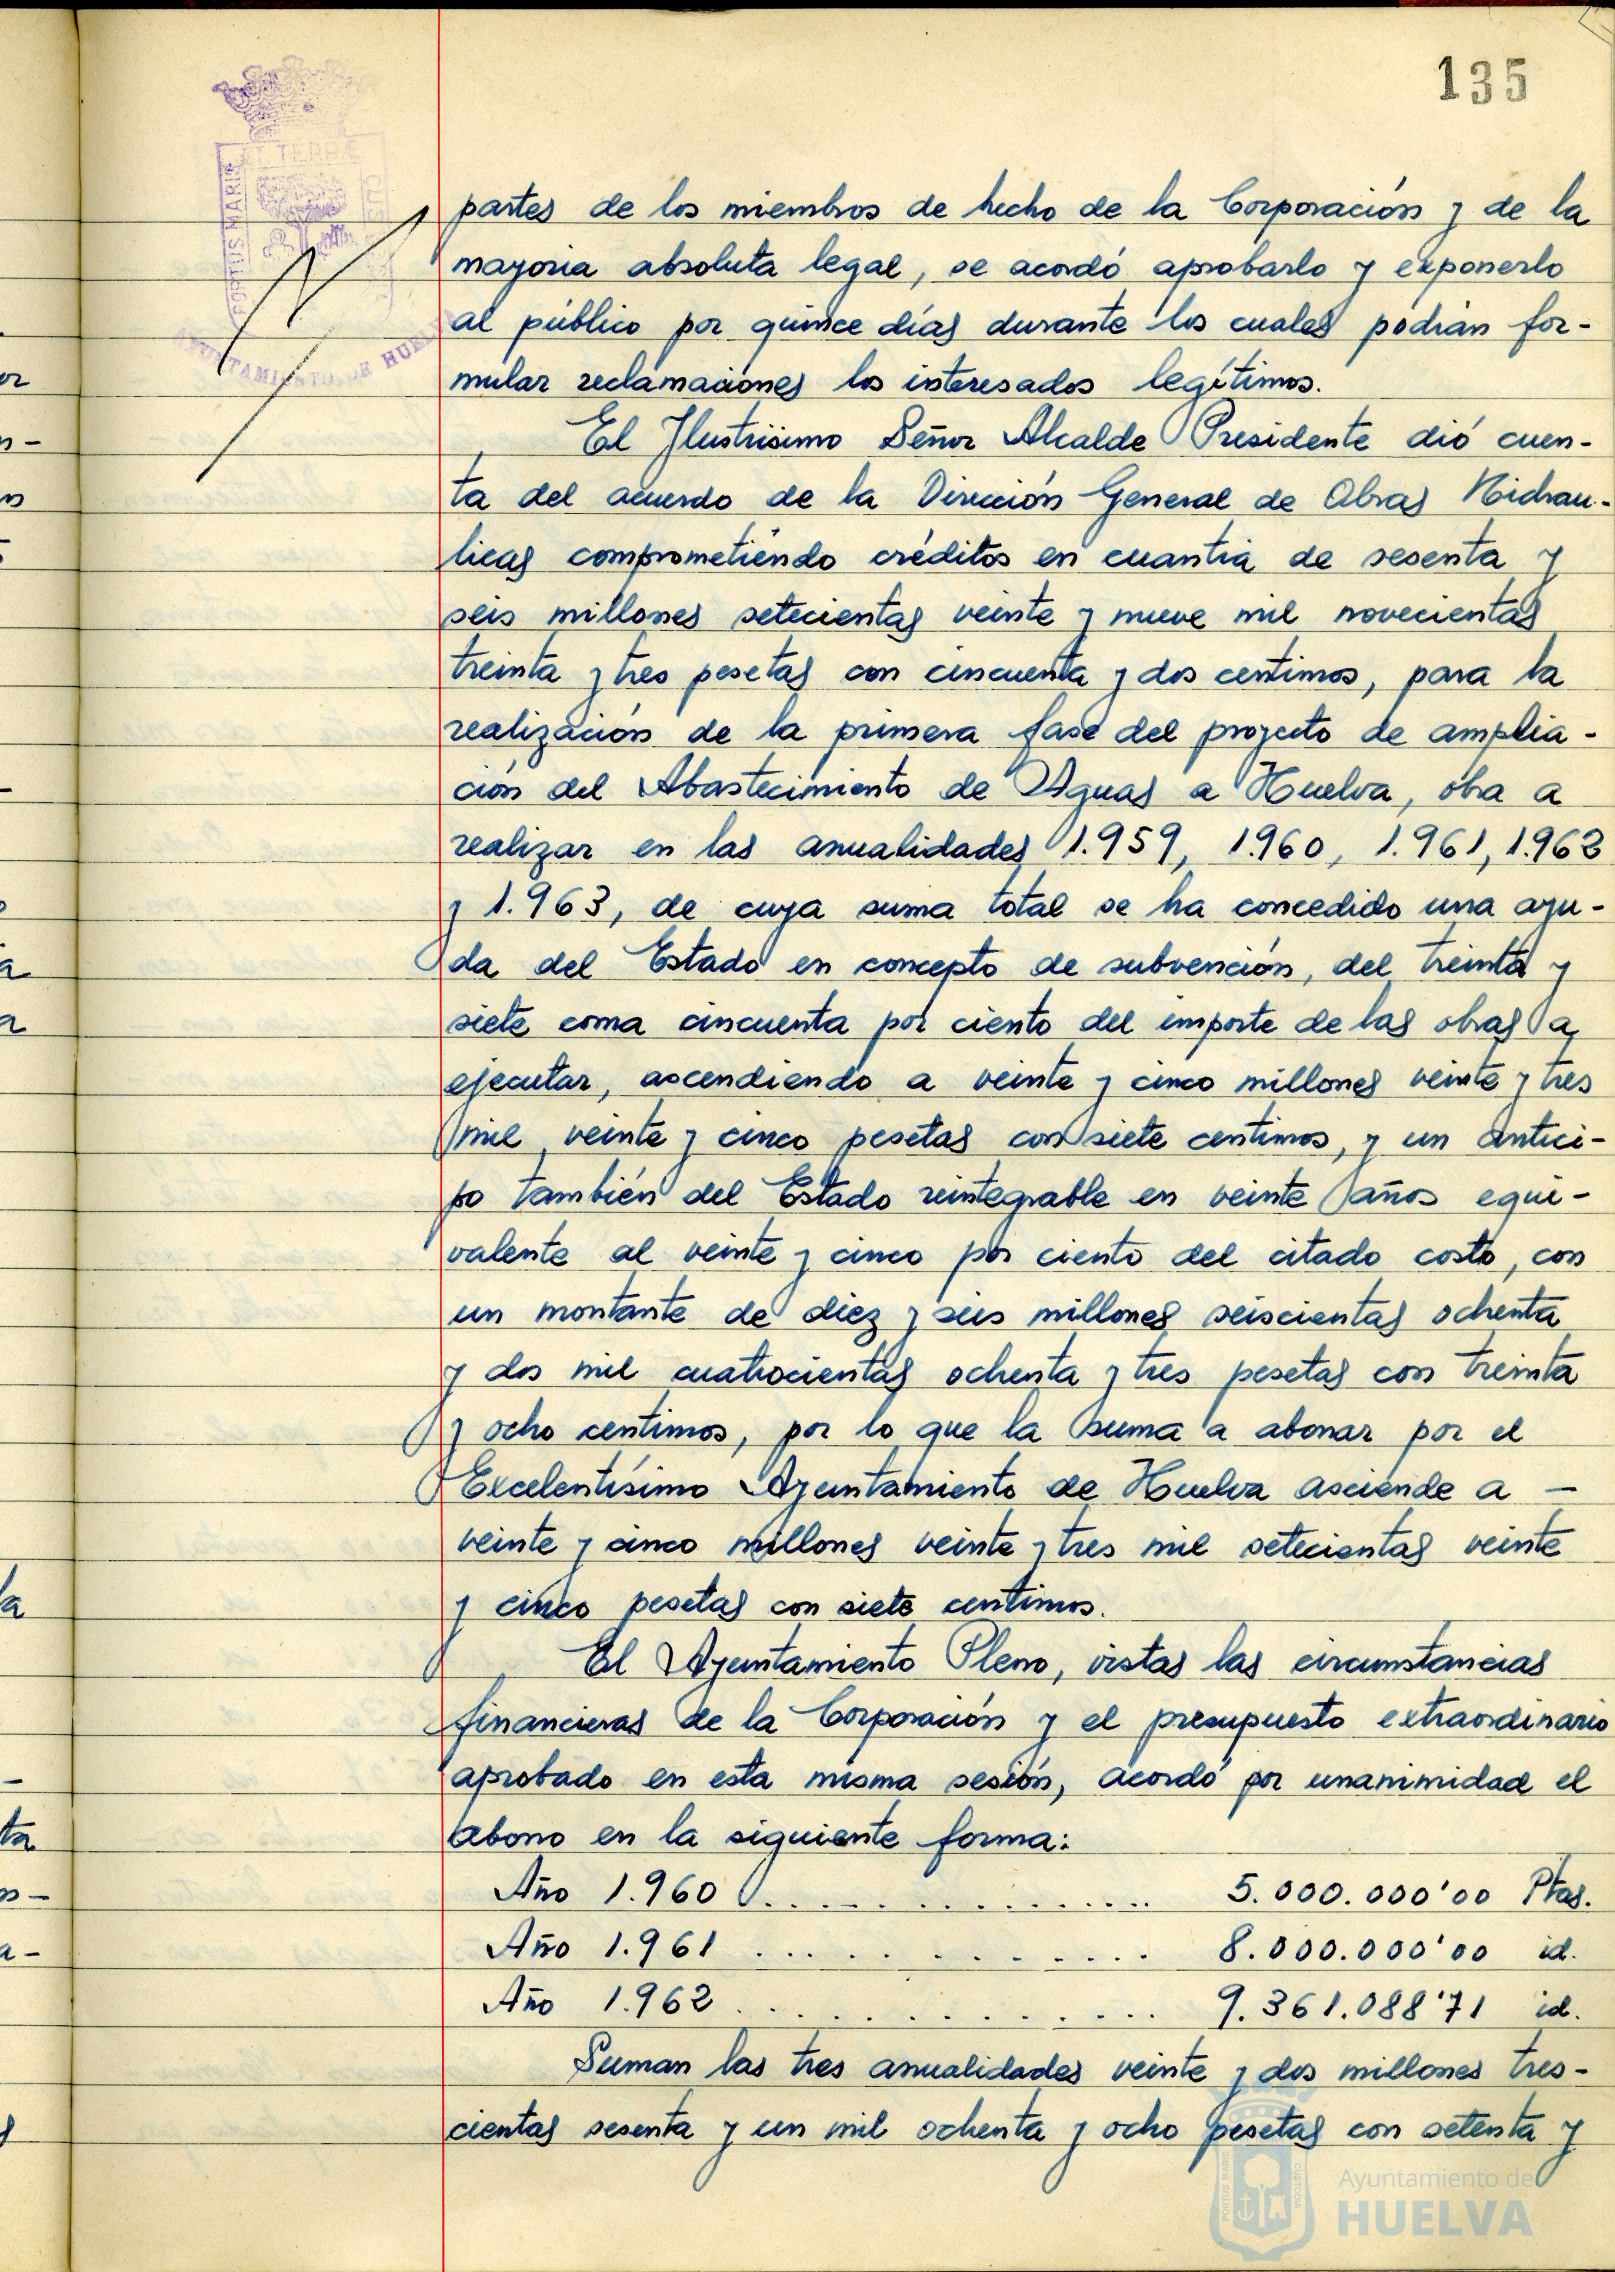 135
PORTUS MARIS
ET TERRAE
CUSTODIA
AYUNTAMIENTO DE HUELVA
partes de los miembros de hecho de la Corporación y de la
mayoria absoluta legal, se acordó aprobarlo y exponerlo
al público por quince días durante los cuales podrán for-
mular reclamaciones los interesados legítimos.
El Ilustrísimo Señor Alcalde Presidente dió cuen-
ta del acuerdo de la Dirección General de Obras Hidrau-
licas comprometiéndo créditos en cuantia de sesenta y
seis millones setecientas veinte y nueve mil novecientas
treinta y tres pesetas con cincuenta y dos centimos, para la
realización de la primera fase del proyecto de amplia-
ción del Abastecimiento de Aguas a Huelva, obra a
realizar en las anualidades 1.959, 1.960, 1.961, 1.962
y 1.963, de cuya suma total se ha concedido una ayu-
da del Estado en concepto de subvención, del treinta y
siete coma cincuenta por ciento del importe de las obras a
ejecutar, ascendiendo a veinte y cinco millones veinte y tres
mil, veinte y cinco pesetas con siete centimos, y un antici-
po también del Estado reintegrable en veinte años equi-
valente al veinte y cinco por ciento del citado costo, con
un montante de diez y seis millones seiscientas ochenta
y dos mil cuatrocientas ochenta y tres pesetas con treinta
y ocho centimos, por lo que la suma a abonar por el
Excelentísimo Ayuntamiento de Huelva asciende a -
veinte y cinco millones veinte y tres mil setecientas veinte
y cinco pesetas con siete centimos.
El Ayuntamiento Pleno, vistas las circunstancias
financieras de la Corporación y el presupuesto extraordinario
aprobado en esta misma sesión, acordó por unanimidad el
abono en la siguiente forma:
Año 1.960 ................ 5.000.000'00 Ptas.
Año 1.961 ................ 8.000.000'00 id.
Año 1.962 ................ 9.361.088'71 id.
Suman las tres anualidades veinte y dos millones tres-
cientas sesenta y un mil ochenta y ocho pesetas con setenta y
Ayuntamiento de
HUELVA